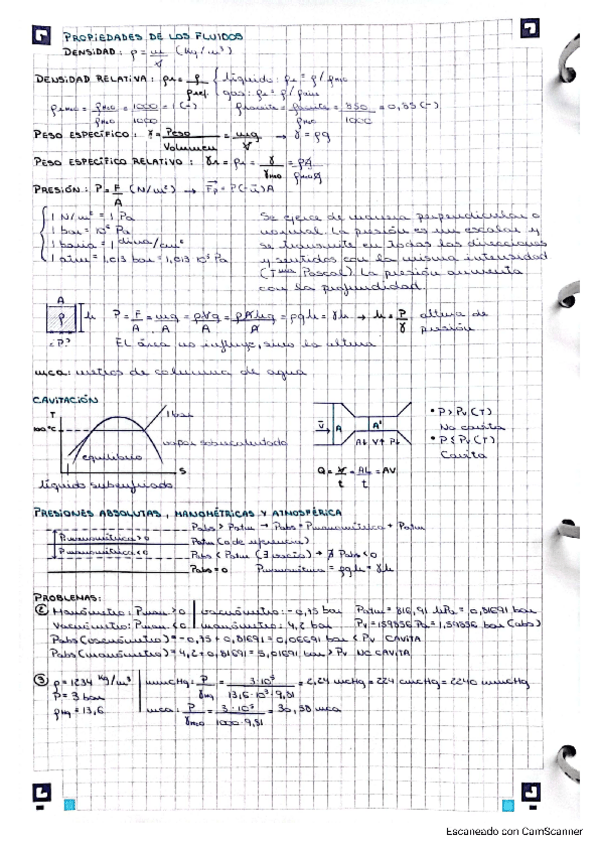 PROPIEDADES DE LOS FLUIDOS
DENSIDAD: ρ = m/V (Kg/m³)
DENSIDAD RELATIVA: ρr = ρ/ρref { líquido: ρr = ρ/ρH2O
gas: ρr = ρ/ρaire
ρrH2O = ρH2O/ρH2O = 1000/1000 = 1 (-) ρraceite = ρaceite/ρH2O = 850/1000 = 0,85 (-)
PESO ESPECÍFICO: γ = Peso/Volumen = mg/V → γ = ρg
PESO ESPECÍFICO RELATIVO: γr = ρr = γ/γH2O = ρg/ρH2Og
PRESIÓN: P = F/A (N/m²) → Fp = P(-n)A
1 N/m² = 1 Pa
1 bar = 10⁵ Pa
1 baria = 1 dina/cm²
1 atm = 1,013 bar = 1,013 10⁵ Pa
Se ejerce de manera perpendicular o
normal. La presión es un escalar y
se transmite en todas las direcciones
y sentidos con la misma intensidad
(Tma Pascal). La presión aumenta
con la profundidad.
A
ρ h
¿P?
P = F/A = mg/A = ρVg/A = ρAhg/A = ρgh = γh → h = P/γ altura de presión
El área no influye, sino la altura
mca: metros de columna de agua
CAVITACIÓN
T
1 bar
100°C
vapor sobrecalentado
equilibrio
S
líquido subenfriado
v A A'
A↓ V↑ P↓
Q = V/t = AL/t = AV
• P > Pv (T)
No cavita
• P ≤ Pv (T)
Cavita
PRESIONES ABSOLUTAS, MANOMÉTRICAS Y ATMOSFÉRICA
Pabs > Patm → Pabs = Pmanométrica + Patm
Pmanométrica > 0
Patm (o de referencia)
Pmanométrica < 0
Pabs < Patm (∃ vacío) → ∄ Pabs < 0
Pabs = 0 Pmanométrica = ρgh = γh
PROBLEMAS:
② Manómetro: Pman. > 0 | vacuómetro: -0,75 bar Patm = 816,91 hPa = 0,81691 bar
Vacuómetro: Pman. < 0 | manómetro: 4,2 bar Pv = 159856 Pa = 1,59856 bar (abs)
Pabs (vacuómetro) = -0,75 + 0,81691 = 0,06691 bar < Pv CAVITA
Pabs (manómetro) = 4,2 + 0,81691 = 5,01691 bar > Pv NO CAVITA
③ ρ = 1234 Kg/m³ | mmcHg: P/γHg = 3·10⁵/13,6·10³·9,81 = 2,24 mcHg = 224 cmcHg = 2240 mmcHg
P = 3 bar
ρHg = 13,6 | mca: P/γH2O = 3·10⁵/1000·9,81 = 30,58 mca
Escaneado con CamScanner